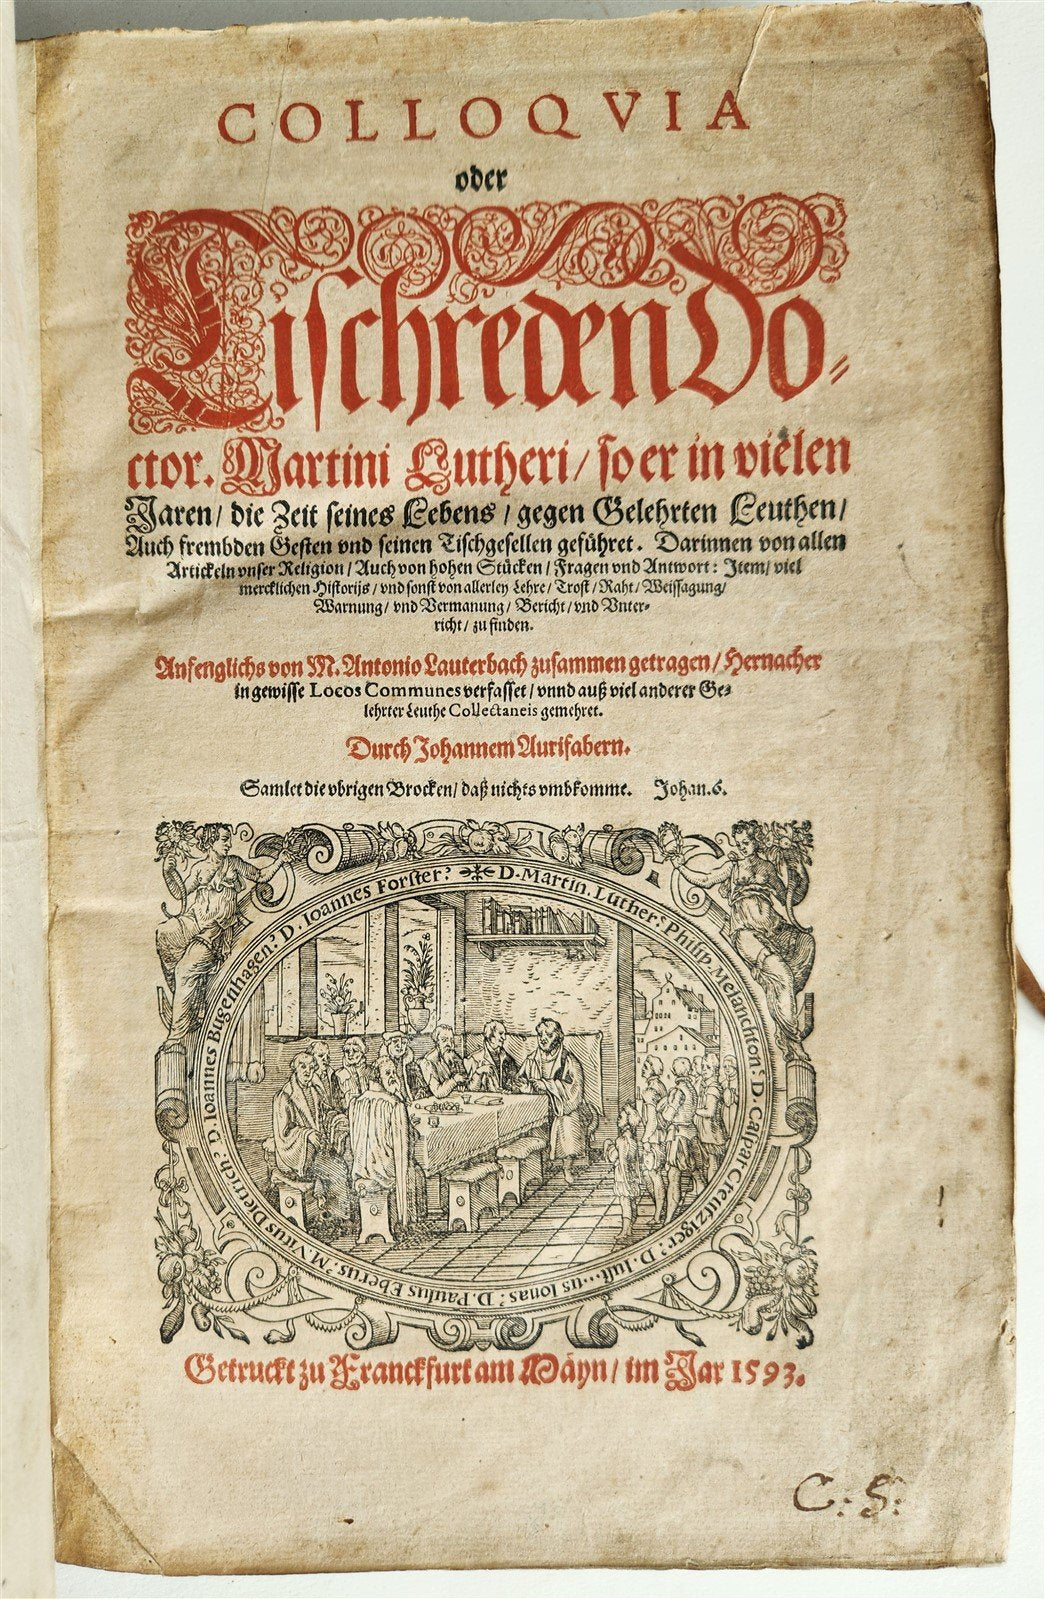 COLLOQVIA
oder
Tischreden Do-
ctor. Martini Lutheri/ so er in vielen
Jaren/ die Zeit seines Lebens/ gegen Gelehrten Leuthen/
Auch frembden Gesten vnd seinen Tischgesellen geführet. Darinnen von allen
Artickeln vnser Religion/ Auch von hohen Stücken/ Fragen vnd Antwort: Item/ viel
mercklichen Historijs/ vnd sonst von allerley Lehre/ Trost/ Raht/ Weissagung/
Warnung/ vnd Vermanung/ Bericht/ vnd Vnter-
richt/ zu finden.
Anfenglichs von M. Antonio Lauterbach zusammen getragen/ Hernacher
in gewisse Locos Communes verfasset/ vnnd auß viel anderer Ge-
lehrter Leuthe Collectaneis gemehret.
Durch Johannem Aurifabern.
Samlet die vbrigen Brocken/ daß nichts vmbkomme. Johan. 6.
D. Martin. Luther: Philip. Melanchton: D. Caspar Creutziger: D. Iust...us Ionas: D. Paulus Eberus: M. Vitus Dietrich: D. Ioannes Bugenhagen: D. Ioannes Forster:
Getruckt zu Franckfurt am Mäyn/ im Jar 1593.
C. S.